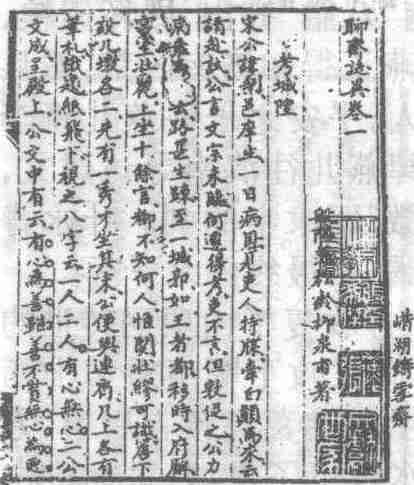 鑄雪齋
聊齋誌異卷一
般陽蒲松齡柳泉甫著
考城隍
宋公諱燾邑庠生一日病臥見吏人持牒牽白顛馬來云
請赴試公言文宗未臨何遽得考吏不言但敦促之公力
病路甚生踈至一城郭如王者都移時入府廨
宮室壯麗上坐十餘官都不知何人惟關壯繆可識簷下
設几墩各二先有一秀才坐其末公便與連肩几上各有
筆札俄題紙飛下視之八字云一人二人有心無心二公
文成呈殿上公文中有云有心為善雖善不賞無心為惡